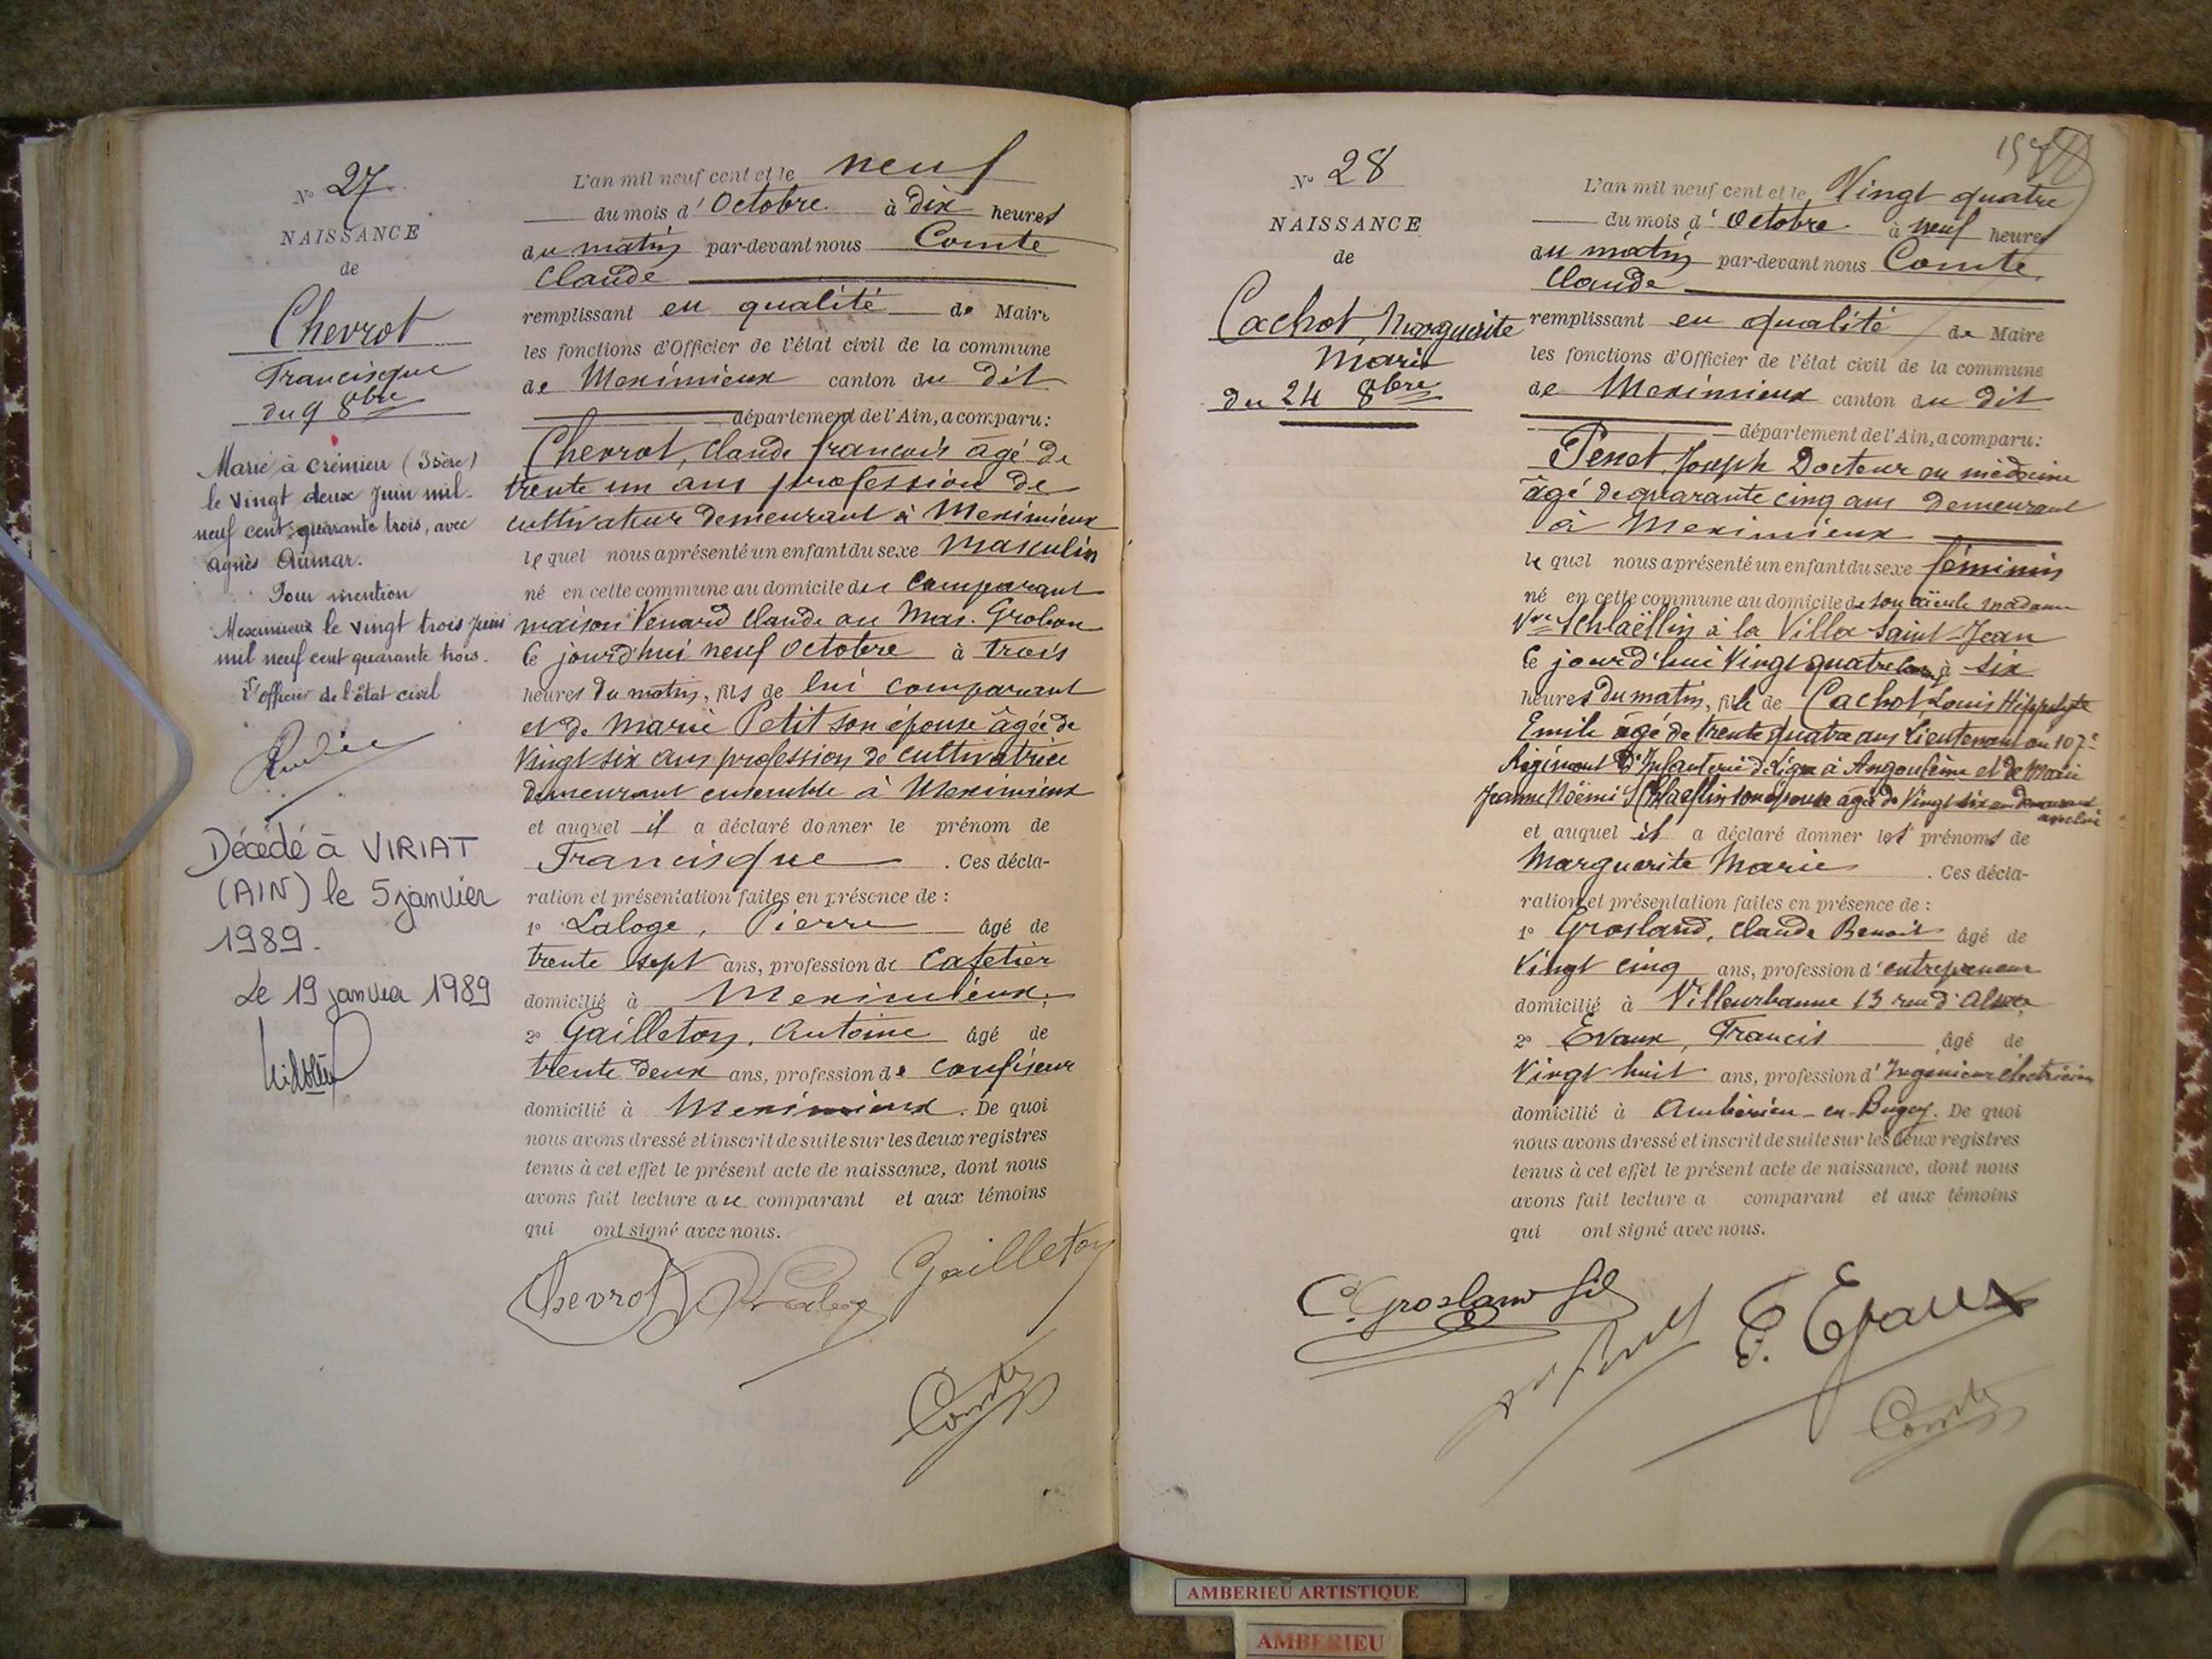 N° 27
NAISSANCE
de
Chevrot
Francisque
du 9 8bre
Marié à Crémieu (Isère)
le vingt deux Juin mil-
neuf cent quarante trois, avec
Agnès Aumar.
Pour mention
Meximieux le vingt trois Juin
mil neuf cent quarante trois.
L'officier de l'état civil
Décédé à VIRIAT
(AIN) le 5 janvier
1989.
Le 19 janvier 1989
L'an mil neuf cent et le neuf
du mois d'Octobre à dix heures
du matin par-devant nous Comte
Claude
remplissant en qualité de Maire
les fonctions d'Officier de l'état civil de la commune
de Meximieux canton du dit
département de l'Ain, a comparu:
Chevrot, Claude françois âgé de
trente un ans profession de
cultivateur demeurant à Meximieux
lequel nous a présenté un enfant du sexe Masculin
né en cette commune au domicile du Comparant
maison Venard Claude au Mas. Grobon
Ce jourd'hui neuf Octobre à trois
heures du matin, fils de lui comparant
et de Marie Petit son épouse âgée de
Vingt six ans profession de cultivatrice
demeurant ensemble à Meximieux
et auquel il a déclaré donner le prénom de
Francisque . Ces décla-
ration et présentation faites en présence de :
1° Laloge, Pierre âgé de
trente sept ans, profession de Cafetier
domicilié à Meximieux.
2° Gailleton, Antoine âgé de
trente deux ans, profession de confiseur
domicilié à Meximieux. De quoi
nous avons dressé et inscrit de suite sur les deux registres
tenus à cet effet le présent acte de naissance, dont nous
avons fait lecture au comparant et aux témoins
qui ont signé avec nous.
Chevrot Gailleton
Comte
N° 28
NAISSANCE
de
Cachot Marguerite
Marie
du 24 8bre
L'an mil neuf cent et le Vingt quatre
du mois d'Octobre à neuf heures
du matin par-devant nous Comte
Claude
remplissant en qualité de Maire
les fonctions d'Officier de l'état civil de la commune
de Meximieux canton du dit
département de l'Ain, a comparu:
Penet, Joseph Docteur en médecine
âgé de quarante cinq ans demeurant
à Meximieux
lequel nous a présenté un enfant du sexe féminin
né en cette commune au domicile de son aïeule madame
Vve Schlaëflin à la Villa Saint-Jean
Ce jourd'hui Vingt quatre à six
heures du matin, fille de Cachot, Louis Hippolyte
Emile âgé de trente quatre ans Lieutenant au 107e
Régiment d'Infanterie de Ligne à Angoulême et de Marie
Jeanne Noëmi Schlaeflin son épouse âgée de Vingt six ans
et auquel il a déclaré donner les prénoms de
Marguerite Marie . Ces décla-
ration et présentation faites en présence de :
1° Grosland, Claude Benoit âgé de
Vingt cinq ans, profession d'entrepreneur
domicilié à Villeurbanne 13 rue d'Alsace
2° Evaux, Francis âgé de
Vingt huit ans, profession d'Ingénieur électricien
domicilié à Ambérieu-en-Bugey. De quoi
nous avons dressé et inscrit de suite sur les deux registres
tenus à cet effet le présent acte de naissance, dont nous
avons fait lecture a comparant et aux témoins
qui ont signé avec nous.
C. Grosland fils
F. Evaux
Comte
AMBERIEU ARTISTIQUE
AMBERIEU